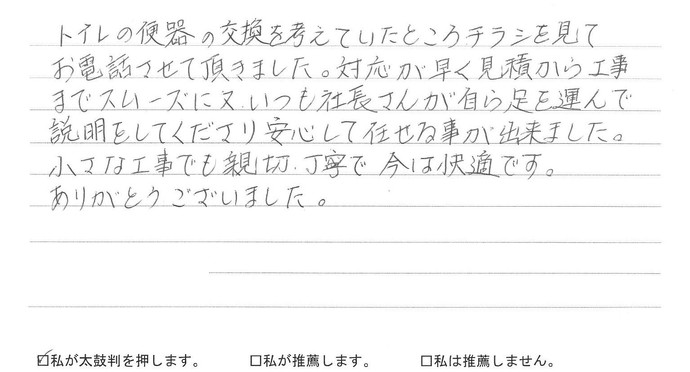 トイレの便器の交換を考えていたところチラシを見て
お電話させて頂きました。対応が早く見積から工事
までスムーズに又、いつも社長さんが自ら足を運んで
説明をしてくださり安心して任せる事が出来ました。
小さな工事でも親切、丁寧で今は快適です。
ありがとうございました。
☑私が太鼓判を押します。 □私が推薦します。 □私は推薦しません。